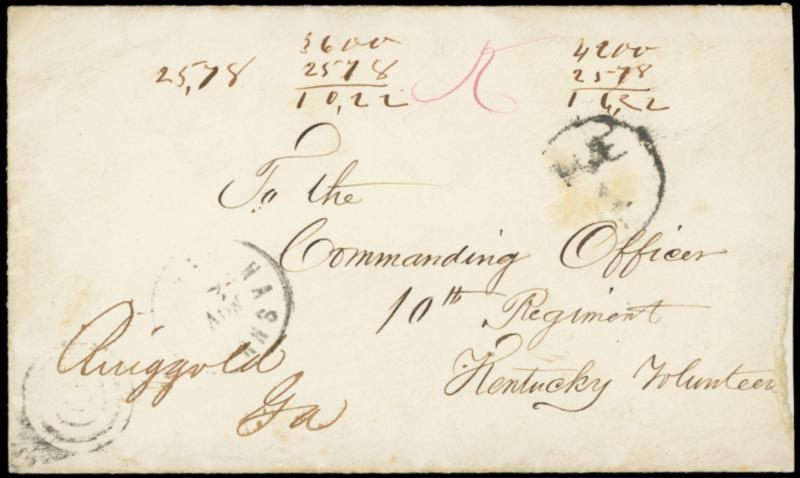 25,78
3600
2578
10,22
4200
2578
16,22
To the
Commanding Officer
10th Regiment
Kentucky Volunteer
NASHV
Ringgold
Ga